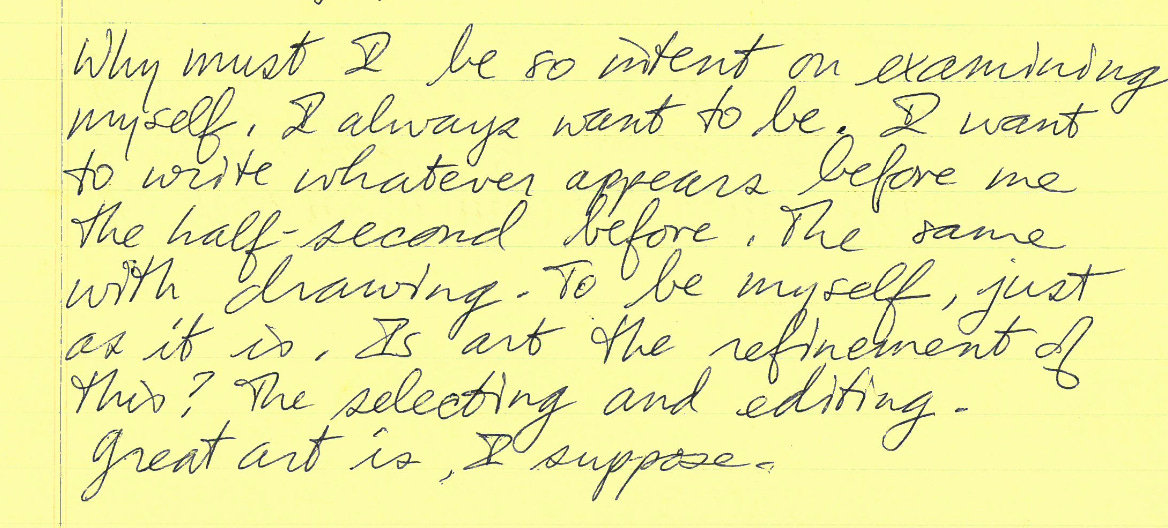 Why must I be so intent on examining
myself. I always want to be. I want
to write whatever appears before me
the half-second before. The same
with drawing. To be myself, just
as it is. Is art the refinement of
this? The selecting and editing.
Great art is, I suppose.